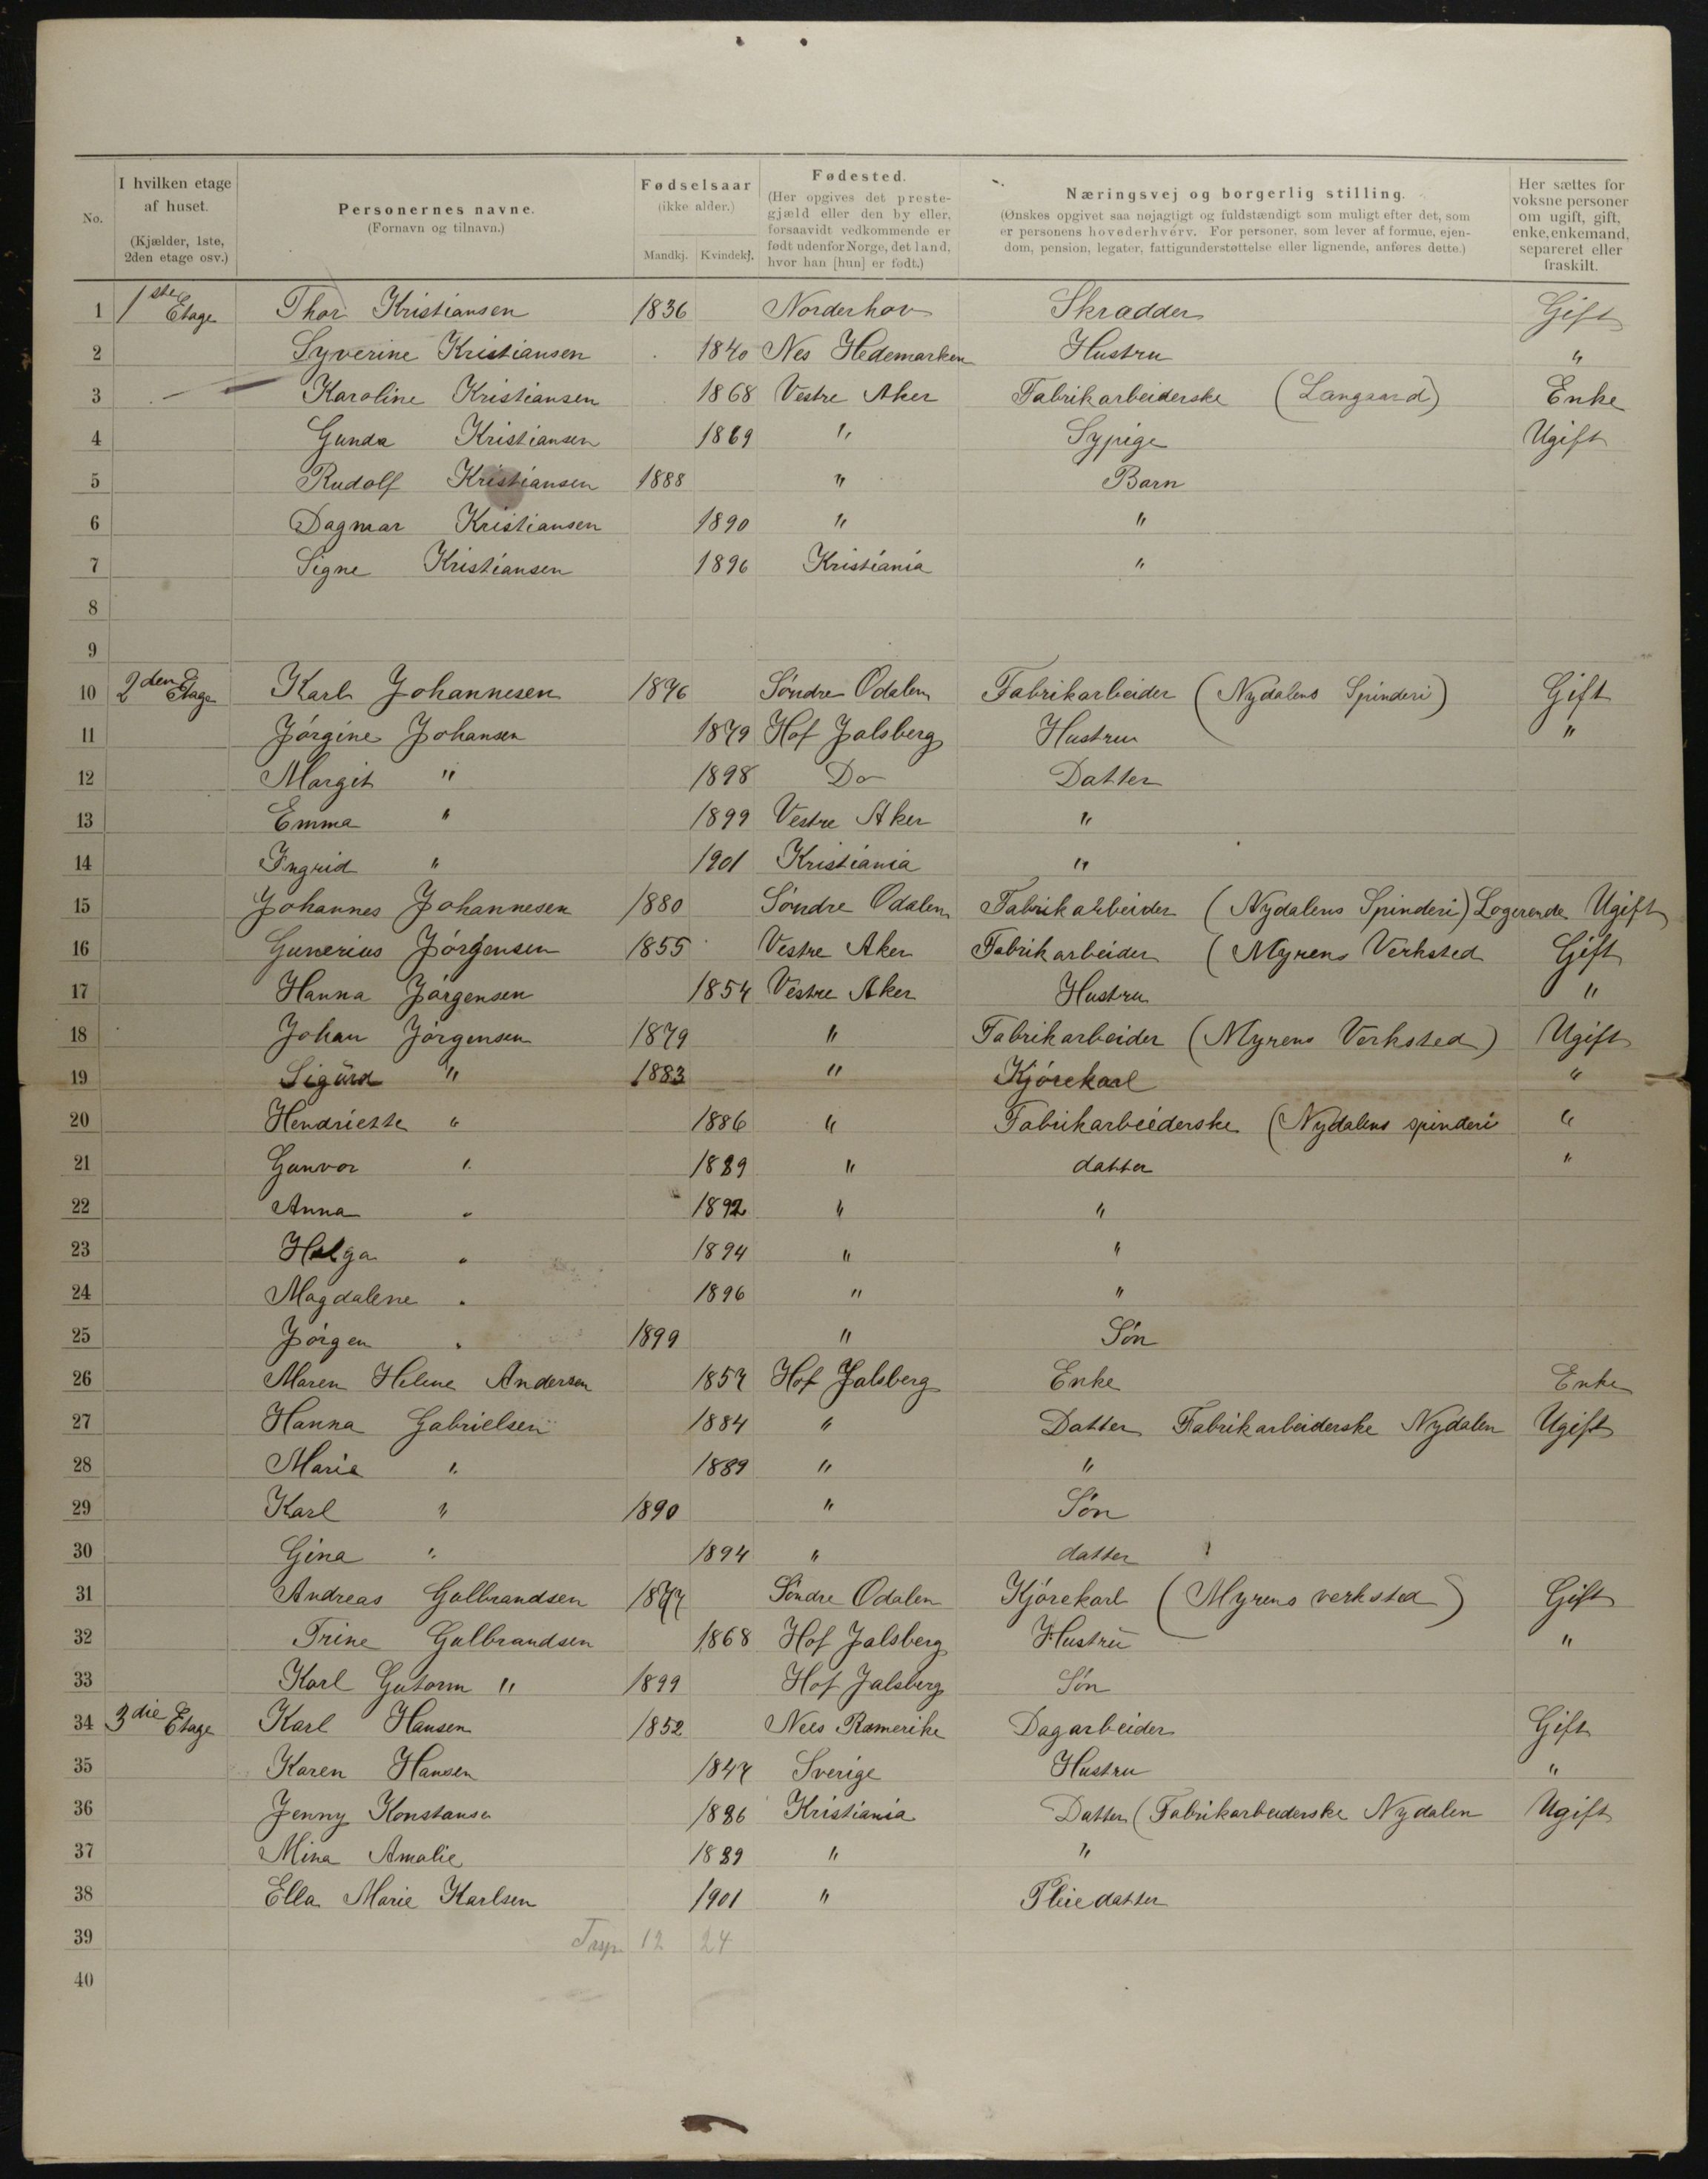 No. I hvilken etage af huset. (Kjælder, 1ste, 2den etage osv.) Personernes navne. (Fornavn og tilnavn.) Fødselsaar (ikke alder.) Mandkj. Kvindekj. Fødested. (Her opgives det prestegjæld eller den by eller, forsaavidt vedkommende er født udenfor Norge, det land, hvor han [hun] er født.) Næringsvej og borgerlig stilling. (Ønskes opgivet saa nøjagtigt og fuldstændigt som muligt efter det, som er personens hovederhverv. For personer, som lever af formue, ejendom, pension, legater, fattigunderstøttelse eller lignende, anføres dette.) Her sættes for voksne personer om ugift, gift, enke, enkemand, separeret eller fraskilt.
1 1ste Etage Thor Kristiansen 1836 Norderhov Skradder Gift
2 Syverine Kristiansen 1840 Nes Hedemarken Hustru "
3 Karoline Kristiansen 1868 Vestre Aker Fabrikarbeiderske (Langaard) Enke
4 Gunda Kristiansen 1869 " Sypige Ugift
5 Rudolf Kristiansen 1888 " Barn
6 Dagmar Kristiansen 1890 " "
7 Signe Kristiansen 1896 Kristiania "
8
9
10 2den Etage Karl Johannesen 1876 Söndre Odalen Fabrikarbeider (Nydalens Spinderi) Gift
11 Jórgine Johansen 1879 Hof Jalsberg Hustru "
12 Margit " 1898 Do Datter
13 Emma " 1899 Vestre Aker "
14 Ingrid " 1901 Kristiania "
15 Johannes Johannesen 1880 Söndre Odalen Fabrikarbeider (Nydalens Spinderi) Logerende Ugift
16 Gunerius Jórgensen 1855 Vestre Aker Fabrikarbeider (Myrens Verksted Gift
17 Hanna Jórgensen 1854 Vestre Aker Hustru "
18 Johan Jórgensen 1879 " Fabrikarbeider (Myrens Verksted) Ugift
19 Sigurd " 1883 " Kjórekarl "
20 Hendriette " 1886 " Fabrikarbeiderske (Nydalens spinderi "
21 Gunvor " 1889 " datter "
22 Anna " 1892 " "
23 Helga " 1894 " "
24 Magdalene " 1896 " "
25 Jórgen " 1899 " Són
26 Maren Helene Andersen 1857 Hof Jalsberg Enke Enke
27 Hanna Gabrielsen 1884 " Datter Fabrikarbeiderske Nydalen Ugift
28 Marie " 1889 " "
29 Karl " 1890 " Són
30 Gina " 1894 " datter
31 Andreas Gulbrandsen 1877 Söndre Odalen Kjórekarl (Myrens verksted) Gift
32 Trine Gulbrandsen 1868 Hof Jalsberg Hustru "
33 Karl Gutorm " 1899 Hof Jalsberg Són
34 3die Etage Karl Hansen 1852 Nees Romerike Dagarbeider Gift
35 Karen Hansen 1847 Sverige Hustru "
36 Jenny Konstanse 1886 Kristiania Datter (Fabrikarbeiderske Nydalen Ugift
37 Mina Amalie 1889 " "
38 Ella Marie Karlsen 1901 " Pleiedatter
39 12 24
40